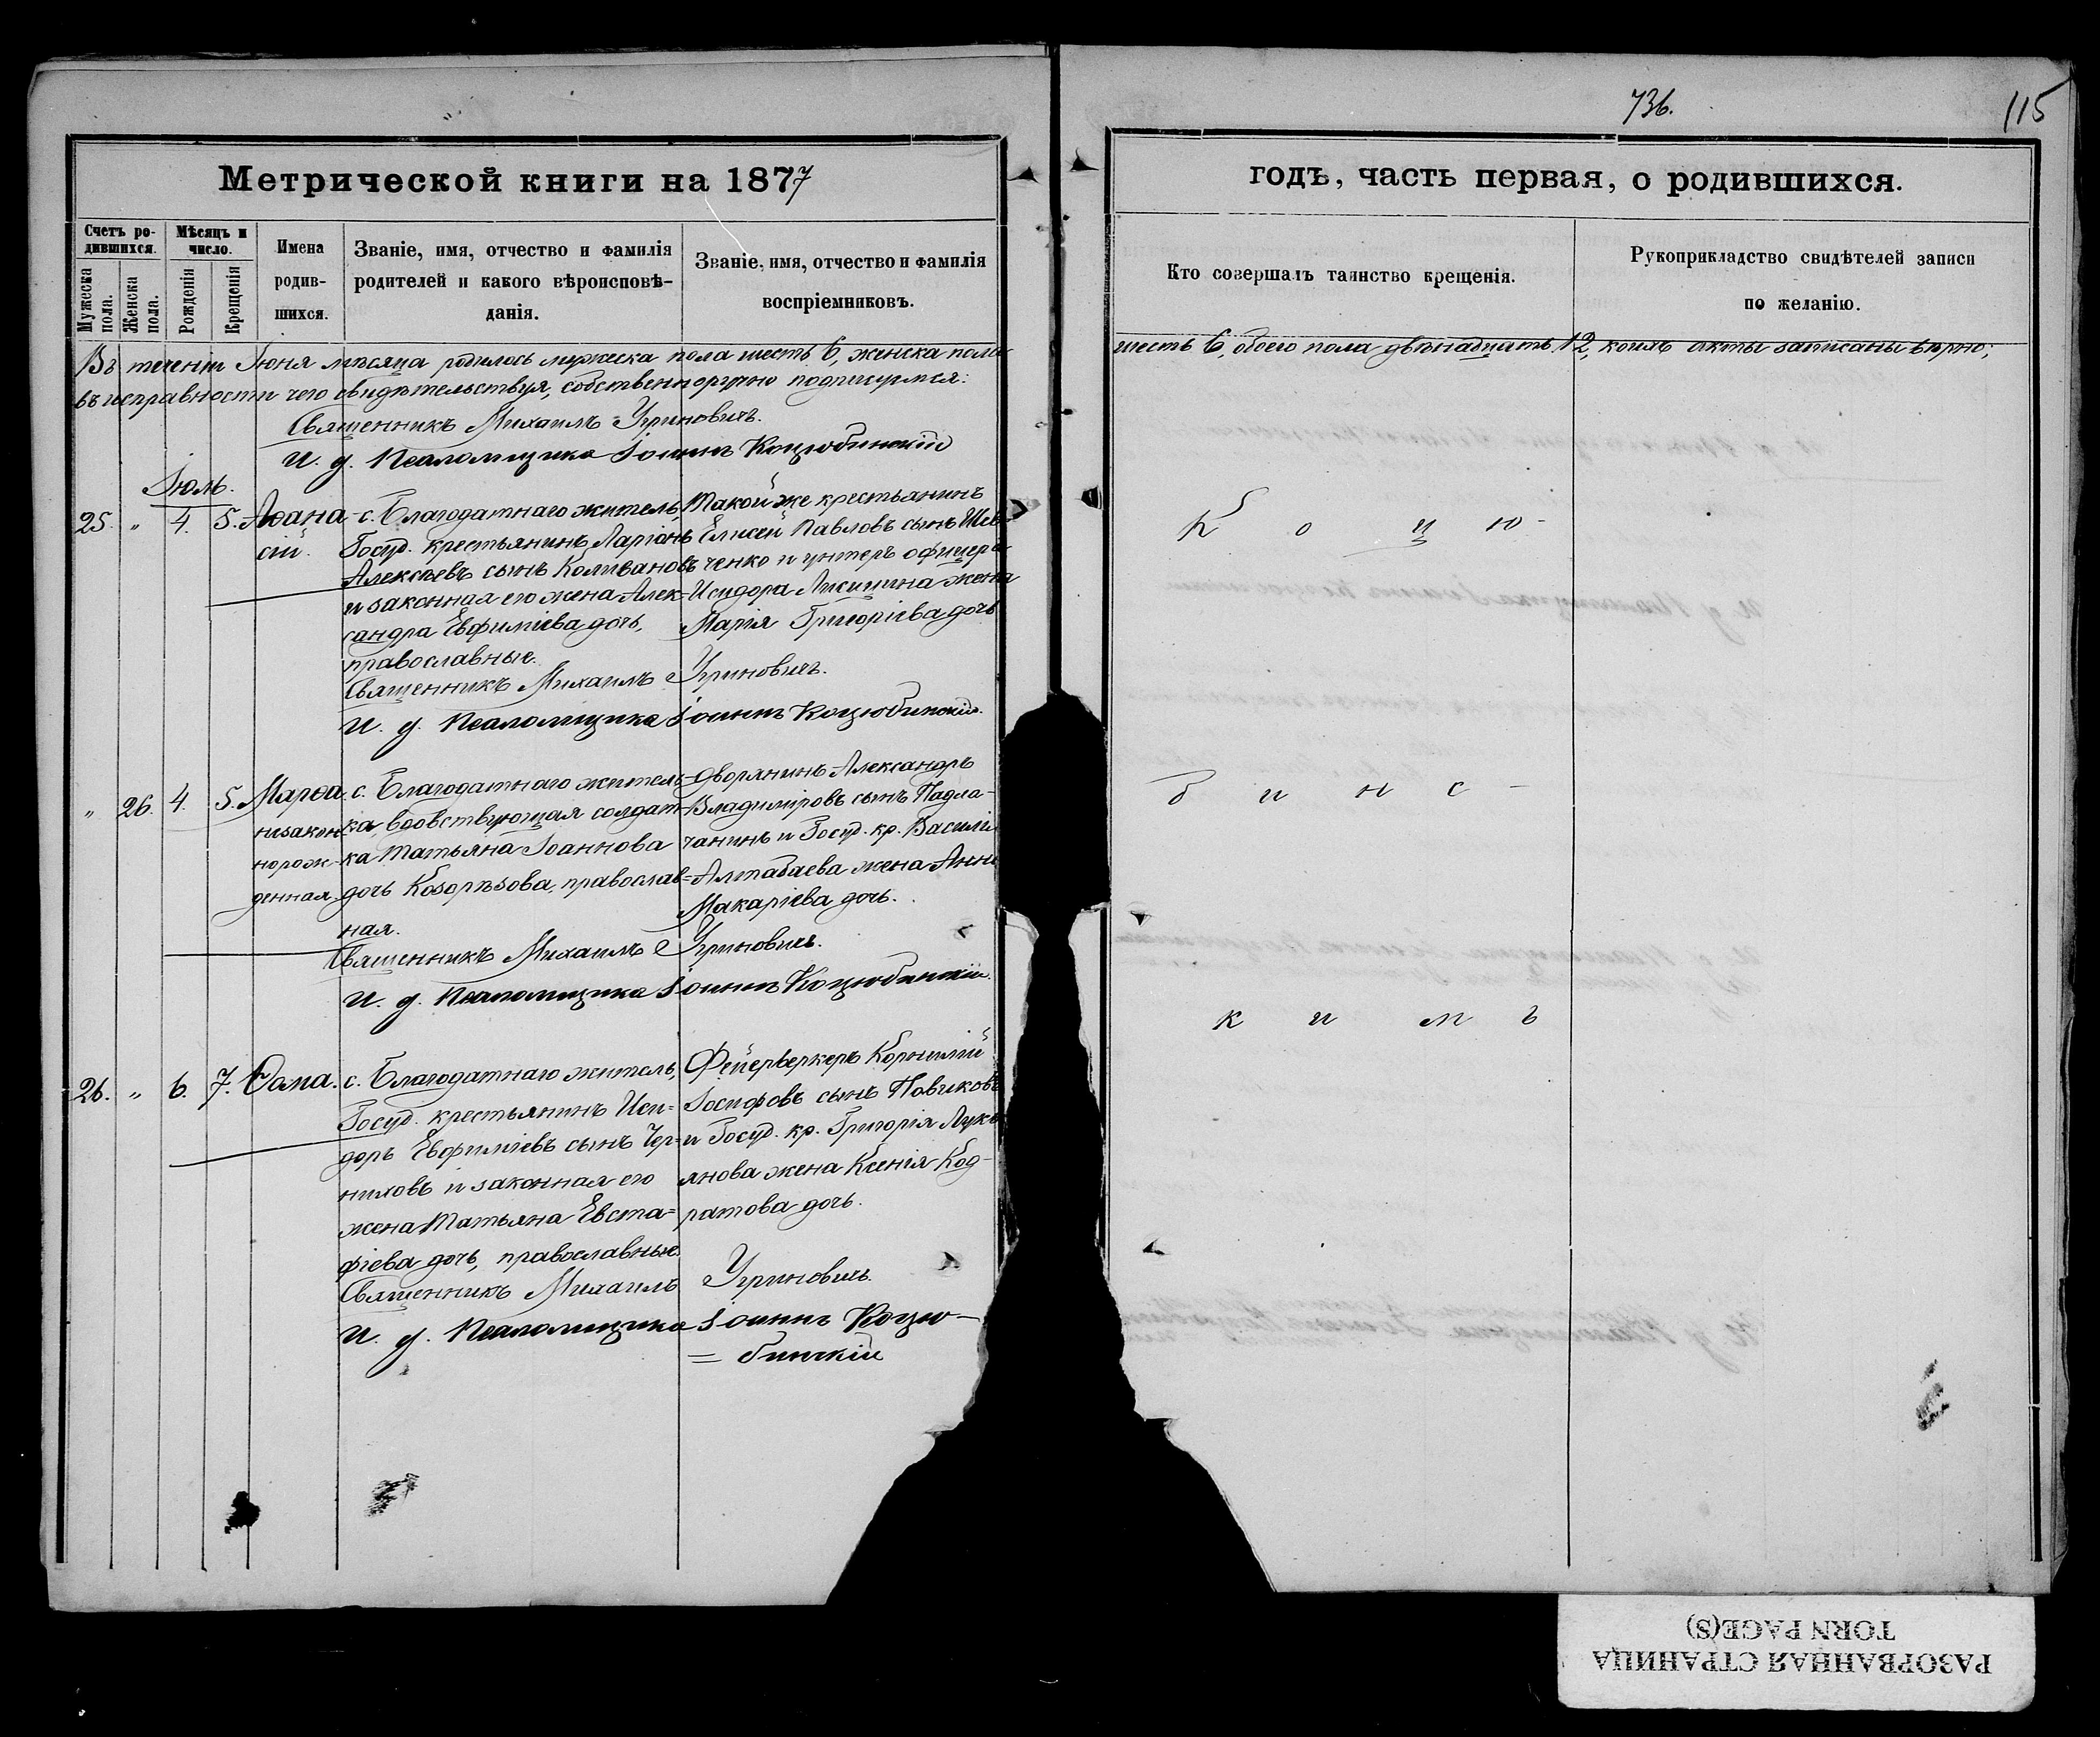 736.
115
Метрической книги на 1877
годъ, часть первая, о родившихся.
Счетъ ро-
дившихся.
Мужеска пола.
Женска пола.
Мѣсяцъ и
число.
Рожденія
Крещенія
Имена
родив-
шихся.
Званіе, имя, отчество и фамилія
родителей и какого вѣроисповѣ-
данія.
Званіе, имя, отчество и фамилія
воспріемниковъ.
Кто совершалъ таинство крещенія.
Рукоприкладство свидѣтелей записи
по желанію.
Въ теченіи Іюня мѣсяца родилось мужеска пола шесть 6, женска пола
шесть 6, обоего пола двѣнадцать 12, коихъ акты записаны вѣрно;
въ исправности чего свидѣтельствуя, собственноручно подписуемся:
Священникъ Михаилъ Угриновичъ.
И. д. Псаломщика Іоаннъ Коцюбинскій
Іюль.
25. " 4. 5. Аѳана-
сій.
с. Благодатнаго житель,
Госуд. крестьянинъ Ларіонъ
Алексѣевъ сынъ Коливановъ
и законная его жена Алек-
сандра Евфиміева дочь,
православные.
Такой же крестьянинъ
Елисей Павловъ сынъ Шев-
ченко и унтеръ офицера
Исидора Лисицина жена
Марія Григоріева дочь
Священникъ Михаилъ Угриновичъ.
И. д. Псаломщика Іоаннъ Коцюбинскій.
К о ц ю-
" 26. 4. 5. Марѳа
незакон
норож-
денная.
с. Благодатнаго житель-
ка, вдовствующая солдат-
ка Татьяна Іоаннова
дочь Козорѣзова, православ=
ная.
Дворянинъ Александръ
Владиміровъ сынъ Падла-
чанинъ и Госуд. кр. Василія
Алтабаева жена Анна
Макаріева дочь.
Священникъ Михаилъ Угриновичъ.
И. д. Псаломщика Іоаннъ Коцюбинскій.
б и н с -
26. " 6. 7. Ѳома.
с. Благодатнаго житель,
Госуд. крестьянинъ Иси=
доръ Евфиміевъ сынъ Чер=
ниховъ и законная его
жена Татьяна Евста=
фіева дочь, православные.
Фейерверкеръ Корнилій
Іосифовъ сынъ Новиковъ
и Госуд. кр. Григорія Лукь
янова жена Ксенія Код-
ратова дочь.
Священникъ Михаилъ Угриновичъ.
И. д. Псаломщика Іоаннъ Коцю-
= бинскій
к и м ъ
РАЗОРВАННАЯ СТРАНИЦА
TORN PAGE(S)